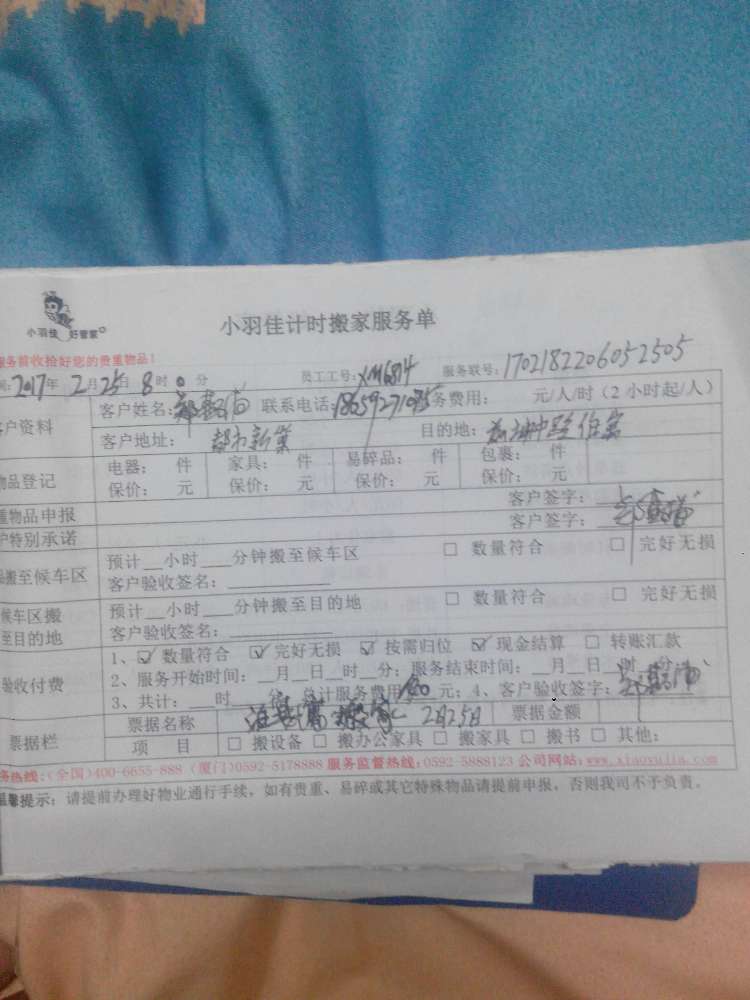 小羽佳 好管家
小羽佳计时搬家服务单
务前收拾好您的贵重物品！
2017年 2月25日 8时0分 员工工号：XM6814 服务联号：1702182206052505
户资料 客户姓名：郑 联系电话： 务费用： 元/人/时（2小时起/人）
客户地址：都市新 目的地：
物品登记 电器： 件 家具： 件 易碎品： 件 包裹： 件
保价： 元 保价： 元 保价： 元 保价： 元
重物品申报 客户签字：
户特别承诺 客户签字：
搬至候车区 预计__小时___分钟搬至候车区 □ 数量符合 □ 完好无损
客户验收签名：
候车区搬 预计__小时___分钟搬至目的地 □ 数量符合 □ 完好无损
至目的地 客户验收签名：
验收付费 1、☑ 数量符合 ☑ 完好无损 ☑ 按需归位 ☑ 现金结算 □ 转账汇款
2、服务开始时间：__月__日__时__分；服务结束时间：__月__日__时__分
3、共计：___时___分，总计服务费用 元；4、客户验收签字：
票据栏 票据名称 搬家 2月25日 票据金额
项 目 □ 搬设备 □ 搬办公家具 □ 搬家具 □ 搬书 □ 其他：
务热线：(全国)400-6655-888 (厦门)0592-5178888 服务监督热线：0592-5888123 公司网站：www.xiaoyujia.com
温馨提示：请提前办理好物业通行手续，如有贵重、易碎或其它特殊物品请提前申报，否则我司不予负责。